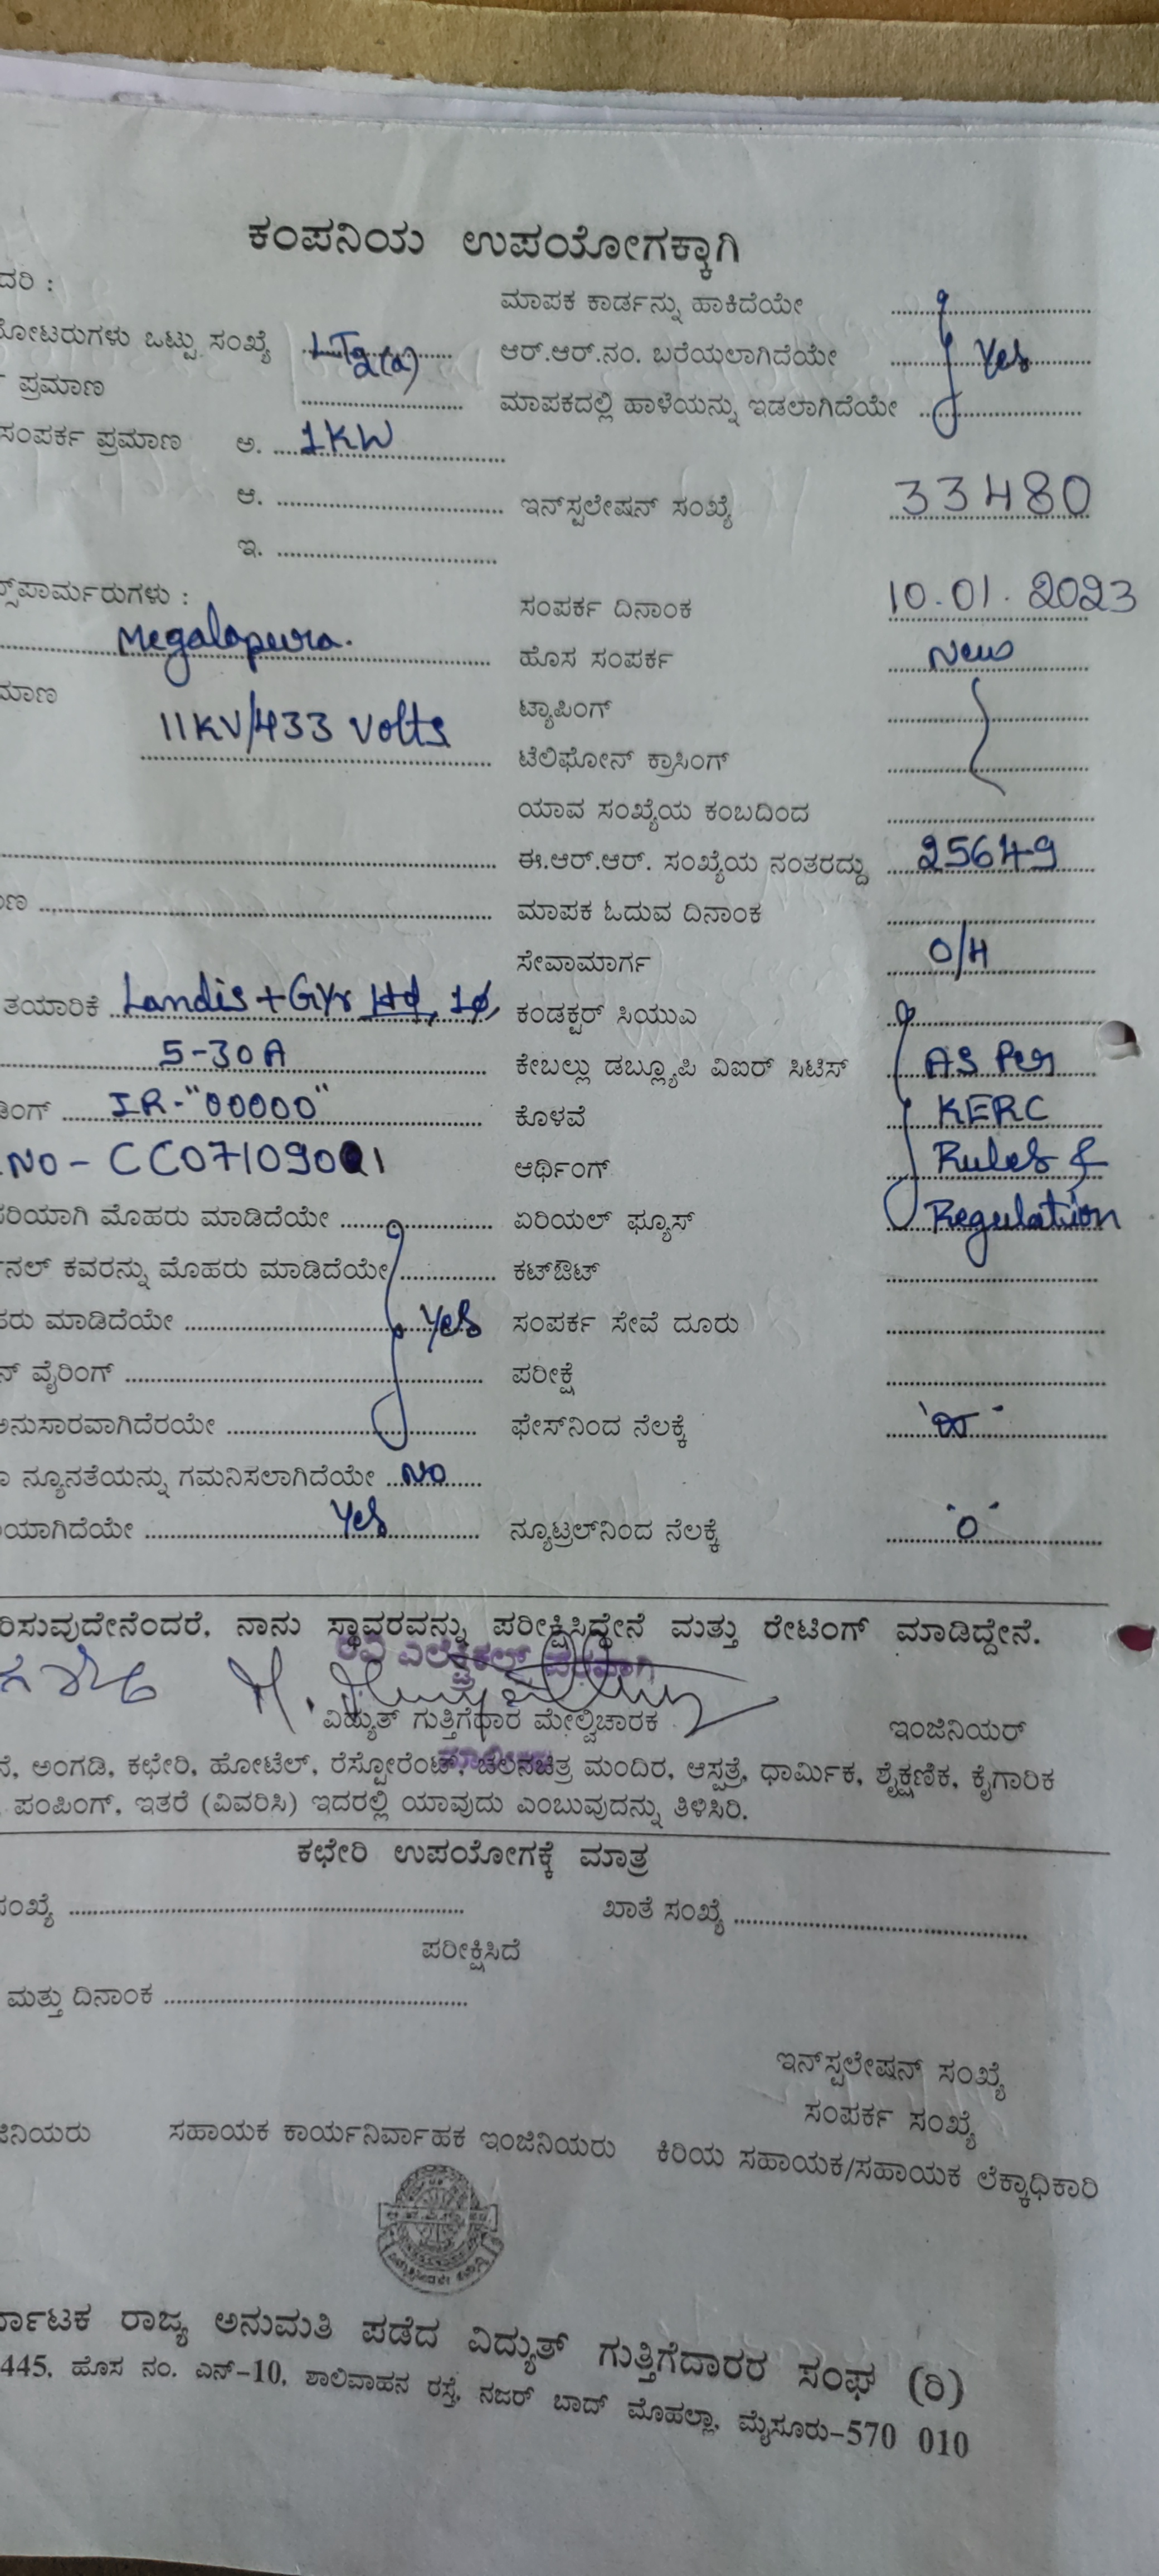 ಕಂಪನಿಯ ಉಪಯೋಗಕ್ಕಾಗಿ
ದರಿ :
ಮಾಪಕ ಕಾರ್ಡನ್ನು ಹಾಕಿದೆಯೇ
ೋಟರುಗಳು ಒಟ್ಟು ಸಂಖ್ಯೆ LT2(a) ಆರ್.ಆರ್.ನಂ. ಬರೆಯಲಾಗಿದೆಯೇ Yes
ಪ್ರಮಾಣ ಮಾಪಕದಲ್ಲಿ ಹಾಳೆಯನ್ನು ಇಡಲಾಗಿದೆಯೇ
ಸಂಪರ್ಕ ಪ್ರಮಾಣ ಅ. 1KW
ಆ. ಇನ್‌ಸ್ಟಲೇಷನ್ ಸಂಖ್ಯೆ 33480
ಇ.
ಸ್‌ಪಾರ್ಮರುಗಳು : ಸಂಪರ್ಕ ದಿನಾಂಕ 10.01.2023
Megalapura. ಹೊಸ ಸಂಪರ್ಕ New
ಮಾಣ ಟ್ಯಾಪಿಂಗ್
11KV/433 Volts ಟೆಲಿಫೋನ್ ಕ್ರಾಸಿಂಗ್
ಯಾವ ಸಂಖ್ಯೆಯ ಕಂಬದಿಂದ
ಈ.ಆರ್.ಆರ್. ಸಂಖ್ಯೆಯ ನಂತರದ್ದು 25649
ಾಣ ಮಾಪಕ ಓದುವ ದಿನಾಂಕ
ಸೇವಾಮಾರ್ಗ O/H
ತಯಾರಿಕೆ Landis + Gyr Ltd, 1φ, ಕಂಡಕ್ಟರ್ ಸಿಯುಎ
5-30A ಕೇಬಲ್ಲು ಡಬ್ಲ್ಯೂಪಿ ವಿಐರ್ ಸಿಟಿಸ್ AS Per
ಡಿಂಗ್ IR-"00000" ಕೊಳವೆ KERC
NO - CC0710901 ಆರ್ಥಿಂಗ್ Rules &
ಸರಿಯಾಗಿ ಮೊಹರು ಮಾಡಿದೆಯೇ ಏರಿಯಲ್ ಫ್ಯೂಸ್ Regulation
ನಲ್ ಕವರನ್ನು ಮೊಹರು ಮಾಡಿದೆಯೇ ಕಟ್‌ಔಟ್
ಹರು ಮಾಡಿದೆಯೇ Yes ಸಂಪರ್ಕ ಸೇವೆ ದೂರು
ನ್ ವೈರಿಂಗ್ ಪರೀಕ್ಷೆ
ಅನುಸಾರವಾಗಿದೆರಯೇ ಫೇಸ್‌ನಿಂದ ನೆಲಕ್ಕೆ
ನ್ಯೂನತೆಯನ್ನು ಗಮನಿಸಲಾಗಿದೆಯೇ NO
ಯಾಗಿದೆಯೇ Yes ನ್ಯೂಟ್ರಲ್‌ನಿಂದ ನೆಲಕ್ಕೆ "0"
ರಿಸುವುದೇನೆಂದರೆ, ನಾನು ಸ್ಥಾವರವನ್ನು ಪರೀಕ್ಷಿಸಿದ್ದೇನೆ ಮತ್ತು ರೇಟಿಂಗ್ ಮಾಡಿದ್ದೇನೆ.
ವಿದ್ಯುತ್ ಗುತ್ತಿಗೆದಾರ ಮೇಲ್ವಿಚಾರಕ ಇಂಜಿನಿಯರ್
ನೆ, ಅಂಗಡಿ, ಕಛೇರಿ, ಹೋಟೆಲ್, ರೆಸ್ಟೋರೆಂಟ್, ಚಲನಚಿತ್ರ ಮಂದಿರ, ಆಸ್ಪತ್ರೆ, ಧಾರ್ಮಿಕ, ಶೈಕ್ಷಣಿಕ, ಕೈಗಾರಿಕ
ಪಂಪಿಂಗ್, ಇತರೆ (ವಿವರಿಸಿ) ಇದರಲ್ಲಿ ಯಾವುದು ಎಂಬುವುದನ್ನು ತಿಳಿಸಿರಿ.
ಕಛೇರಿ ಉಪಯೋಗಕ್ಕೆ ಮಾತ್ರ
ಸಂಖ್ಯೆ ಖಾತೆ ಸಂಖ್ಯೆ
ಪರೀಕ್ಷಿಸಿದೆ
ಮತ್ತು ದಿನಾಂಕ
ಇನ್‌ಸ್ಟಲೇಷನ್ ಸಂಖ್ಯೆ
ಸಂಪರ್ಕ ಸಂಖ್ಯೆ
ಜಿನಿಯರು ಸಹಾಯಕ ಕಾರ್ಯನಿರ್ವಾಹಕ ಇಂಜಿನಿಯರು ಕಿರಿಯ ಸಹಾಯಕ/ಸಹಾಯಕ ಲೆಕ್ಕಾಧಿಕಾರಿ
ರ್ನಾಟಕ ರಾಜ್ಯ ಅನುಮತಿ ಪಡೆದ ವಿದ್ಯುತ್ ಗುತ್ತಿಗೆದಾರರ ಸಂಘ (ರಿ)
445, ಹೊಸ ನಂ. ಎನ್-10, ಶಾಲಿವಾಹನ ರಸ್ತೆ, ನಜರ್ ಬಾದ್ ಮೊಹಲ್ಲಾ, ಮೈಸೂರು-570 010